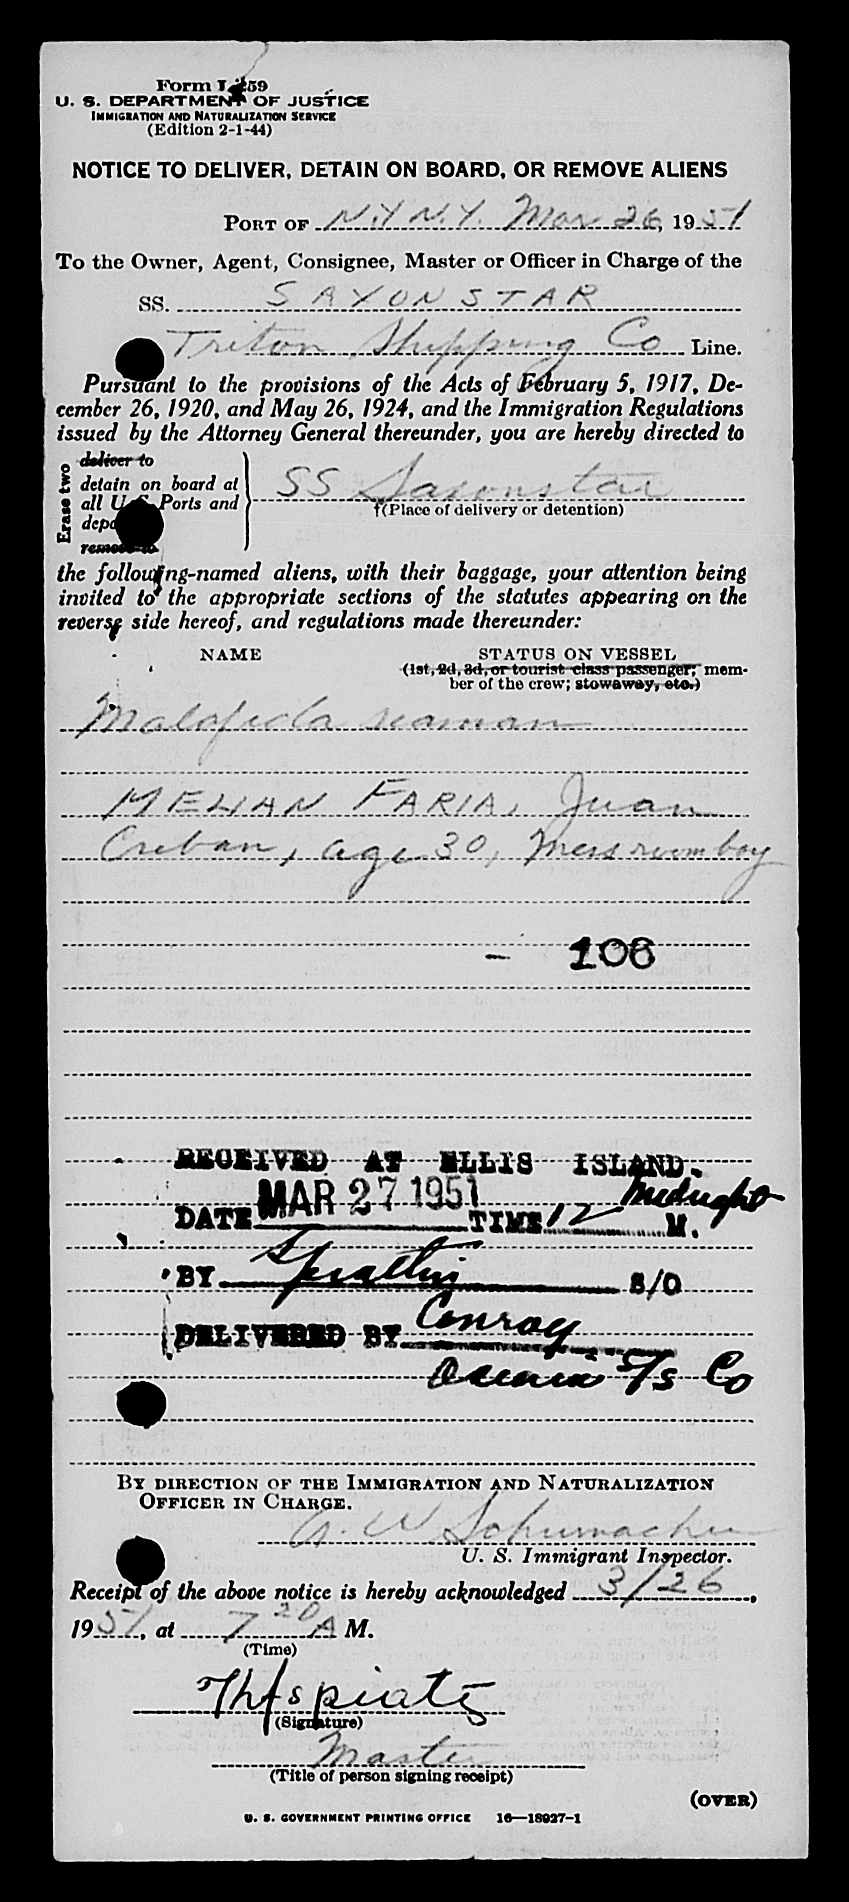 Form I-259
U. S. DEPARTMENT OF JUSTICE
IMMIGRATION AND NATURALIZATION SERVICE
(Edition 2-1-44)
NOTICE TO DELIVER, DETAIN ON BOARD, OR REMOVE ALIENS
PORT OF N.Y. N.Y. Mar 26, 1951
To the Owner, Agent, Consignee, Master or Officer in Charge of the
SS. SAXON STAR
Triton Shipping Co Line.
Pursuant to the provisions of the Acts of February 5, 1917, De-
cember 26, 1920, and May 26, 1924, and the Immigration Regulations
issued by the Attorney General thereunder, you are hereby directed to
Erase two
deliver to
detain on board at
all U. S. Ports and
remove to
SS Saxonstar
†(Place of delivery or detention)
the following-named aliens, with their baggage, your attention being
invited to the appropriate sections of the statutes appearing on the
reverse side hereof, and regulations made thereunder:
NAME STATUS ON VESSEL
(1st, 2d, 3d, or tourist class passenger; mem-
ber of the crew; stowaway, etc.)
Malafida seaman
MELIAN FARIA, Juan
age 30, Mess room boy
- 106
RECEIVED AT ELLIS ISLAND.
DATE MAR 27 1951 TIME 12 Midnight M.
BY S/O
DELIVERED BY Conroy
S/s Co
BY DIRECTION OF THE IMMIGRATION AND NATURALIZATION
OFFICER IN CHARGE.
Schumacher
U. S. Immigrant Inspector.
Receipt of the above notice is hereby acknowledged 3/26,
1951, at 7 20 A M.
(Time)
(Signature)
Master
(Title of person signing receipt)
(OVER)
U. S. GOVERNMENT PRINTING OFFICE 16—18927-1